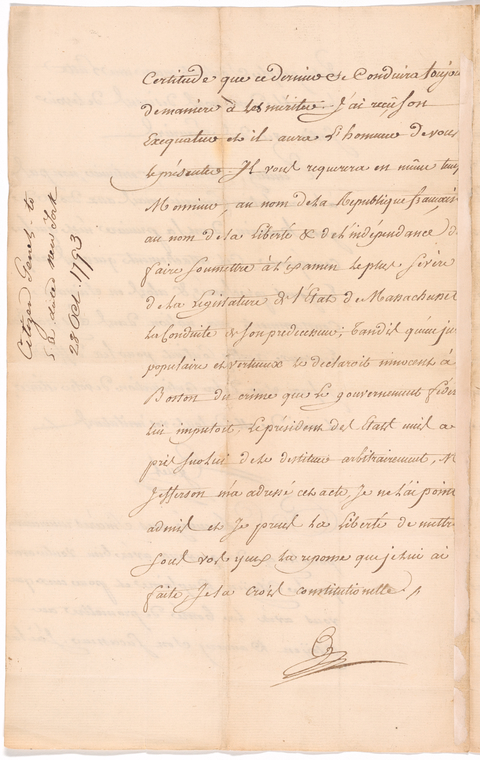 Certitude que ce dernier se Conduira toujou
de maniere à les mériter. J'ai reçû son
Exequatur et il aura l'honneur de vous
le présenter. Il vous requerera en même tems
Monsieur, au nom de la Republique françai
au nom de la liberté & de l'independance d
faire soumettre à l'examen le plus sévère
de la Legislature de l'Etat de Massachuset
la Conduite de son predecesseur; tandis qu'un ju
populaire et vertueux le déclaroit innocent à
Boston du crime que le gouvernement féder
lui imputoit, le président des Etats unis a
pris sur lui de le destituer arbitrairement, M
Jefferson m'a adressé cet acte, Je ne l'ai point
admis et Je prens la liberté de mettre
sous vos yeux la reponse que je lui ai
faite, Je la crois constitutionelle.
Citizen Genet to
S A dated New York
28 Oct. 1793